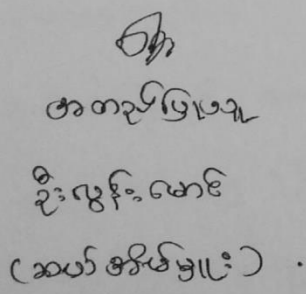 အတည်ပြုသူ
ဦးလွန်းမောင်
(ဆယ်အိမ်မှူး)